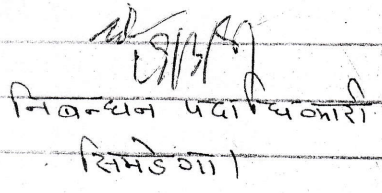 निबन्धन पदाधिकारी
सिमडेगा।